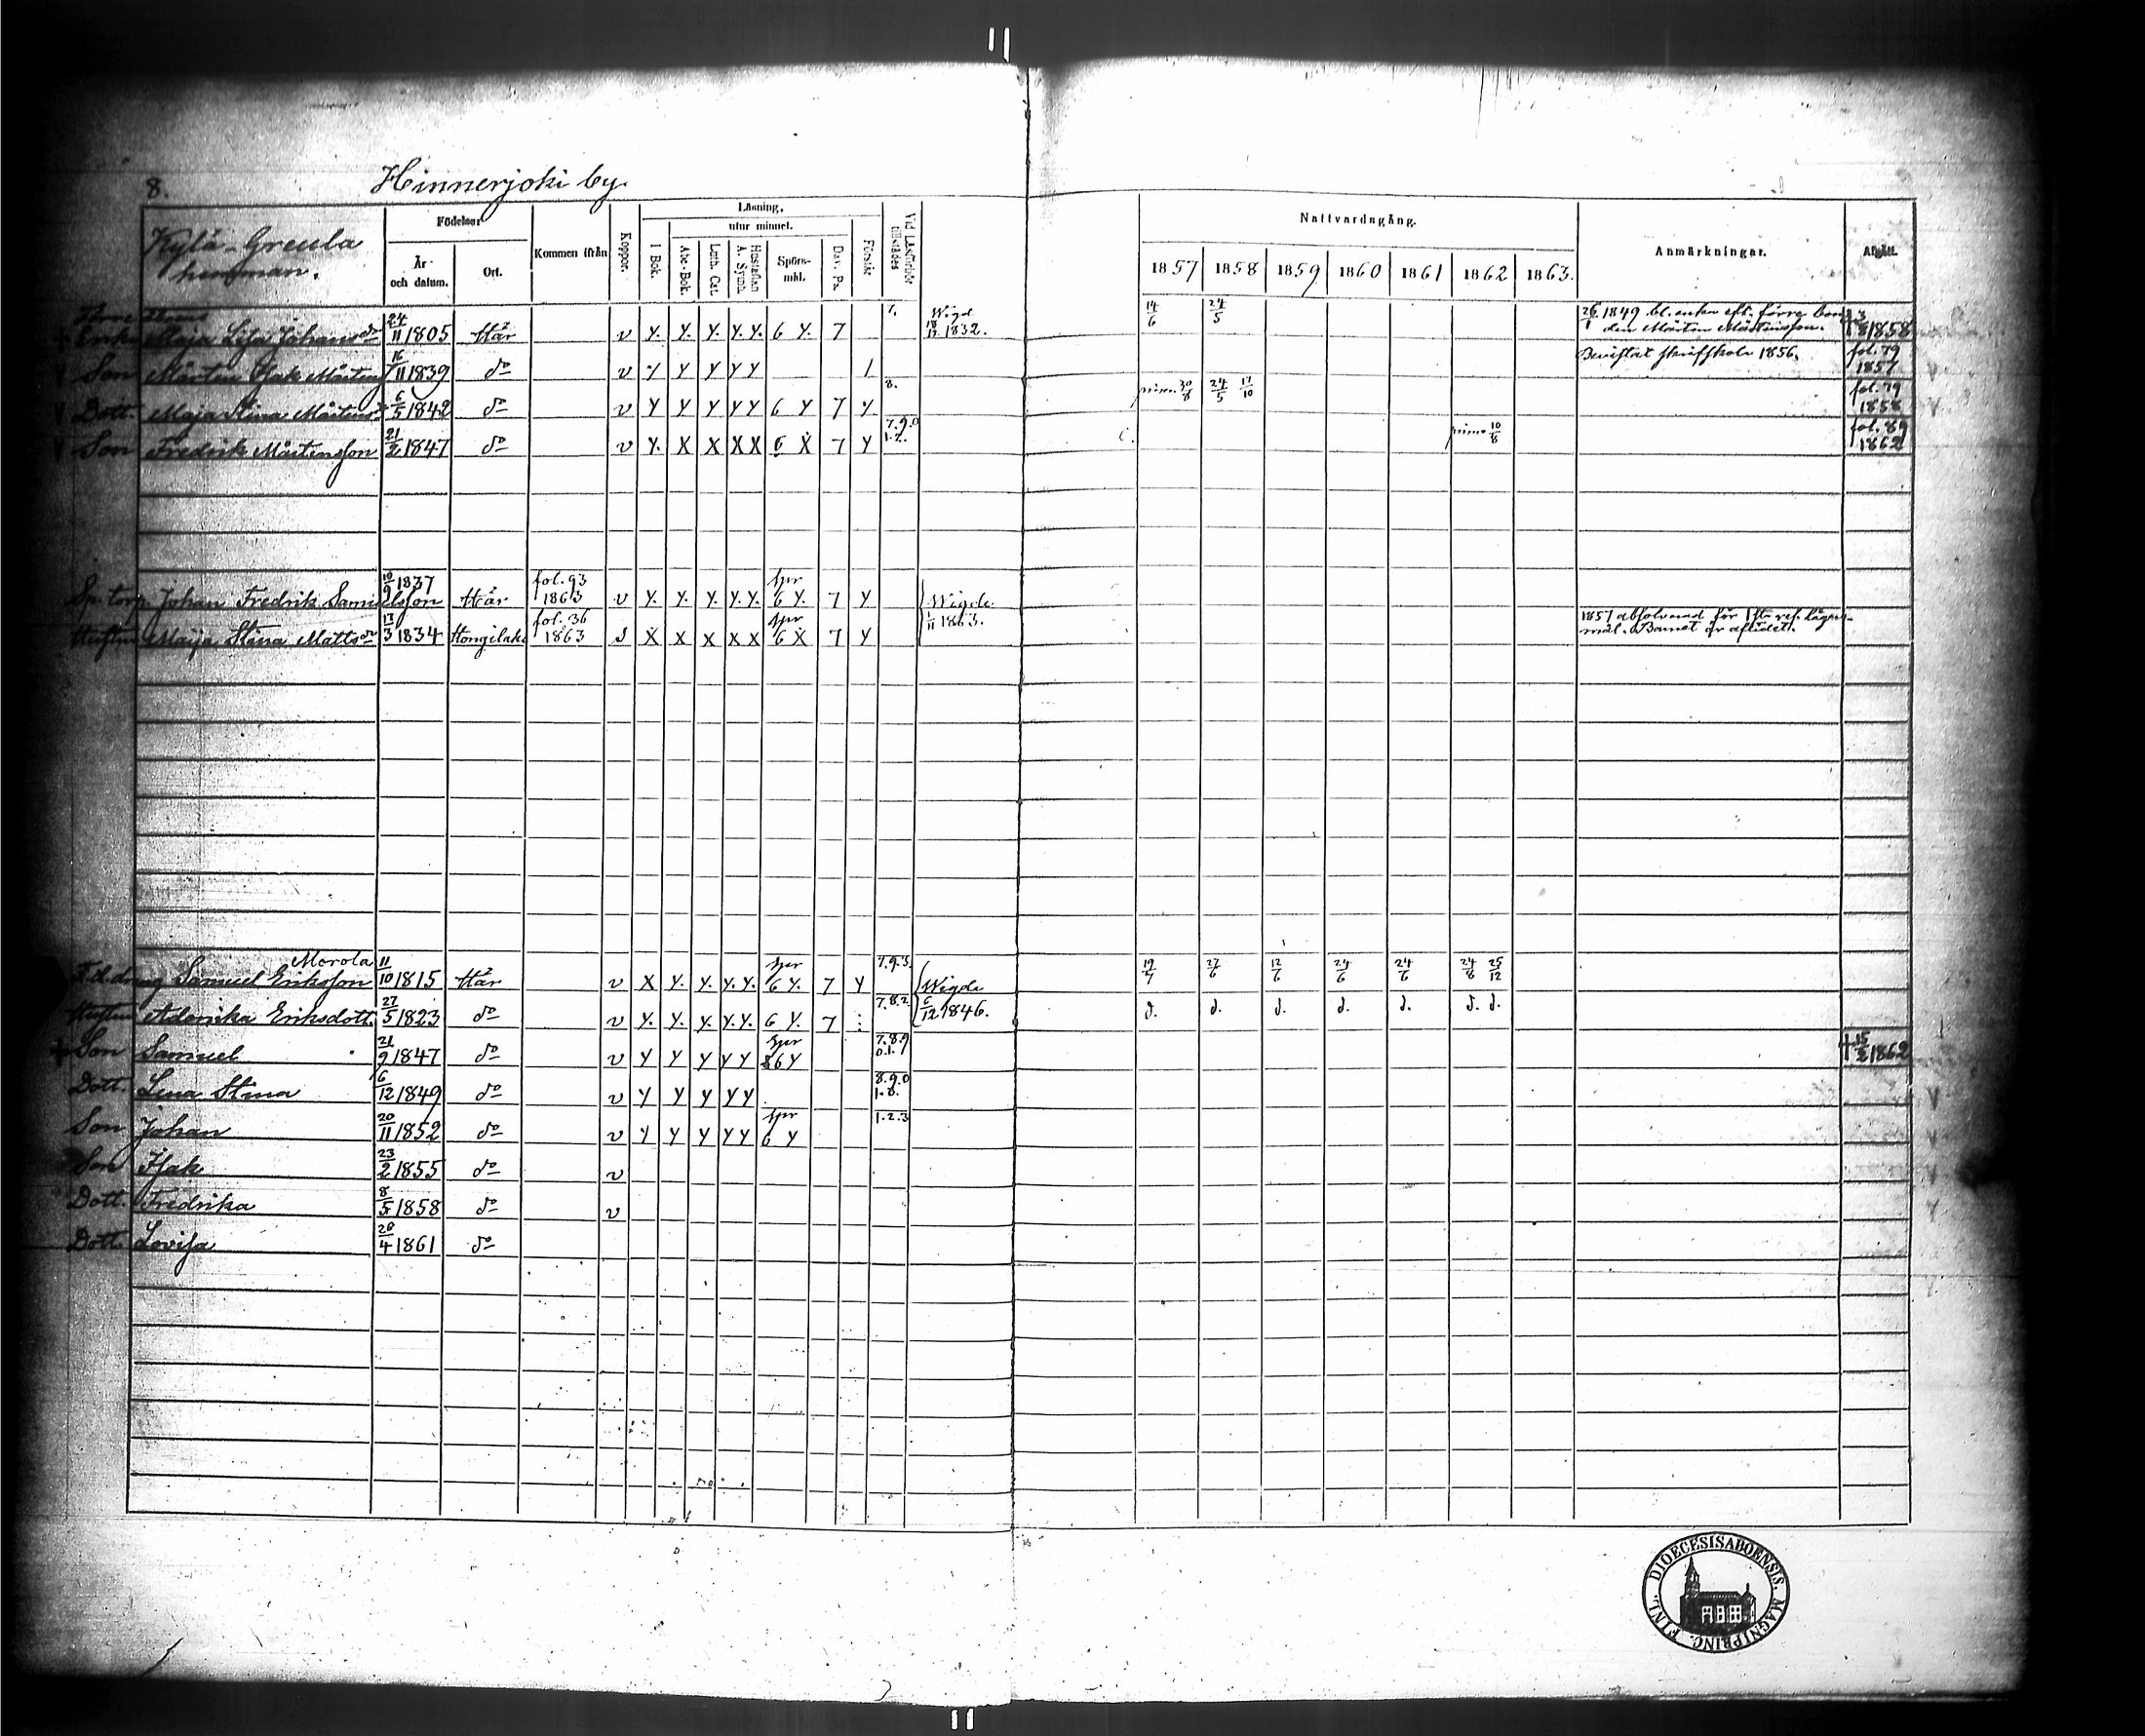 8. Hinnerjoki by.
Kylä-Greula
hemman.
Födelse-
År
och datum.
Ort.
Kommen ifrån
Koppor.
Läsning,
I Bok.
utur minnet.
Abc-Bok.
Luth. Cat.
Hustaflan
A. Symb.
Spörs-
mål.
Dav. Ps.
Förstår
Vid Läsförhör
tillstädes
Nattvardsgång.
1857 1858 1859 1860 1861 1862 1863.
Anmärkningar.
Afgått.
Enka Maja Lisa Johansdr 24/11 1805 Här v y. y. y. y. y. 6 y. 7 7. Wigd 18/12 1832. 14/6 24/5 26/1 1849 bl. enka eft. förre bon-
den Mårten Mårtensson. 1858
Son Mårten Isak Mårtens 16/11 1839 do v y y y y y / Bevistat skriftskola 1856. fol. 79
1857
Dott. Maja Stina Mårtensdr 6/5 1842 do v y y y y y 6 y 7 y 8. prim. 30/8 24/5 17/10 fol. 79
1858
Son Fredrik Mårtensson 21/2 1847 do v y. x x x x 6 x 7 y 7.9.0
1.2. prim. 10/8 fol. 89
1862
Sp. torp. Johan Fredrik Samuelsson 10/9 1837 Här fol. 93
1863 v y. y. y. y. y. spr
6 y. 7 y Wigde
1/11 1863.
Hustrun Maja Stina Mattsdr 13/3 1834 Hongilaks fol. 36
1863 s x x x x x spr
6 x 7 y 1857 absolverad för 1sta res. lägers-
mål. Barnet är aflidet.
Morola
F.d. dräng Samuel Eriksson 11/10 1815 Här v x y. y. y. y. spr
6 y. 7 y 7.9.3. Wigde
6/12 1846. 19/7 27/6 12/6 24/6 24/6 24/8 25/12
Hustrun Aderika Eriksdott. 27/5 1823 do v y. y. y. y. y. 6 y. 7 : 7.8.2 d. d. d. d. d. d. d.
+ Son Samuel 21/9 1847 do v y y y y y spr
6 y 7.8.9
0.1. + 15/2 1862
Dott. Lena Stina 6/12 1849 do v y y y y y 8.9.0
1.3.
Son Johan 20/11 1852 do v y y y y y spr
6 y 1.2.3
Son Isak 23/2 1855 do v
Dott. Fredrika 8/5 1858 do v
Dott. Lovisa 28/4 1861 do
DIOECESISABOENSIS. MAGNIPRINC. FINL.